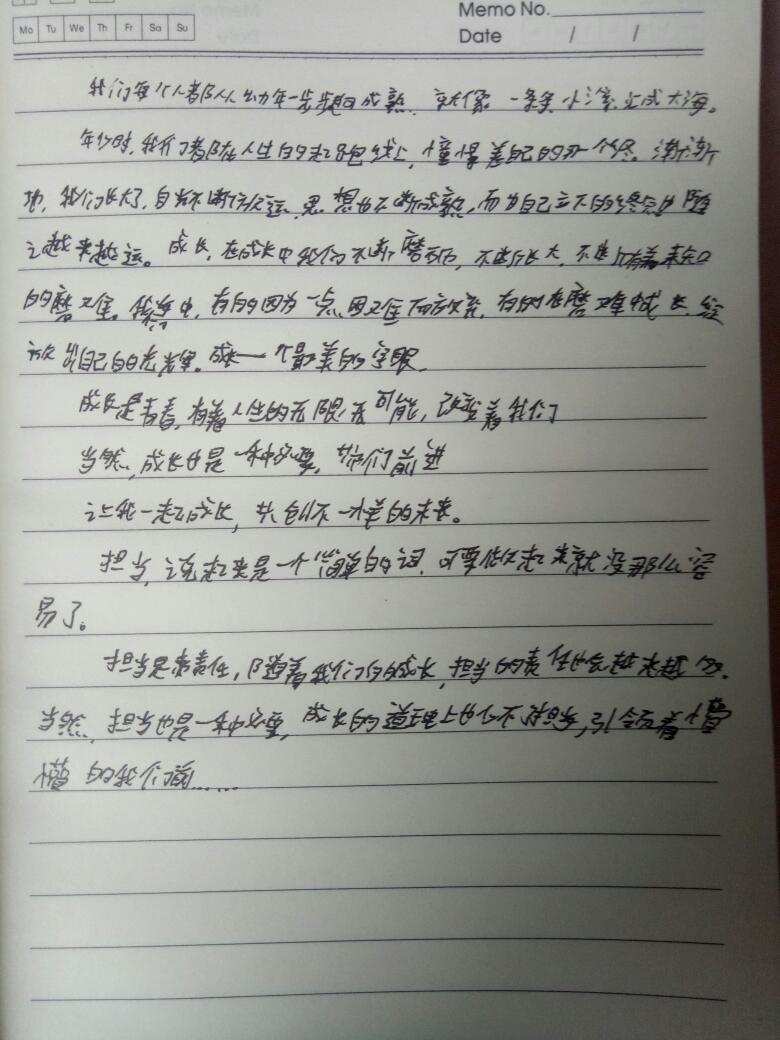 Memo No.
Mo Tu We Th Fr Sa Su
Date / /
我们每个人都从幼年一步步走向成熟，就像一条条小溪汇成大海。
年少时，我们都在人生的起跑线上，憧憬着自己的那一个终。渐渐
地，我们长大了，自当不断行远，思想也不断成熟，而为自己立下的终点也随
之越来越远。成长，在成长中我们不断磨砺，不断长大，不断有着未知
的磨难。我们中，有的因为一点困难而放弃，有的在磨难中成长，绽
放出自己的光辉。成长一个最美的字眼，
成长是青春，有着人生的无限可能，改变着我们
当然，成长也是一种必要，带我们前进
让我一起成长，共创不一样的未来。
担当，说起来是一个简单的词，可要做起来就没那么容
易了。
担当是责任，随着我们的成长，担当的责任也会越来越
当然，担当也是一种必要，成长的道路上也少不担当，引领着懵
懂的我们前......